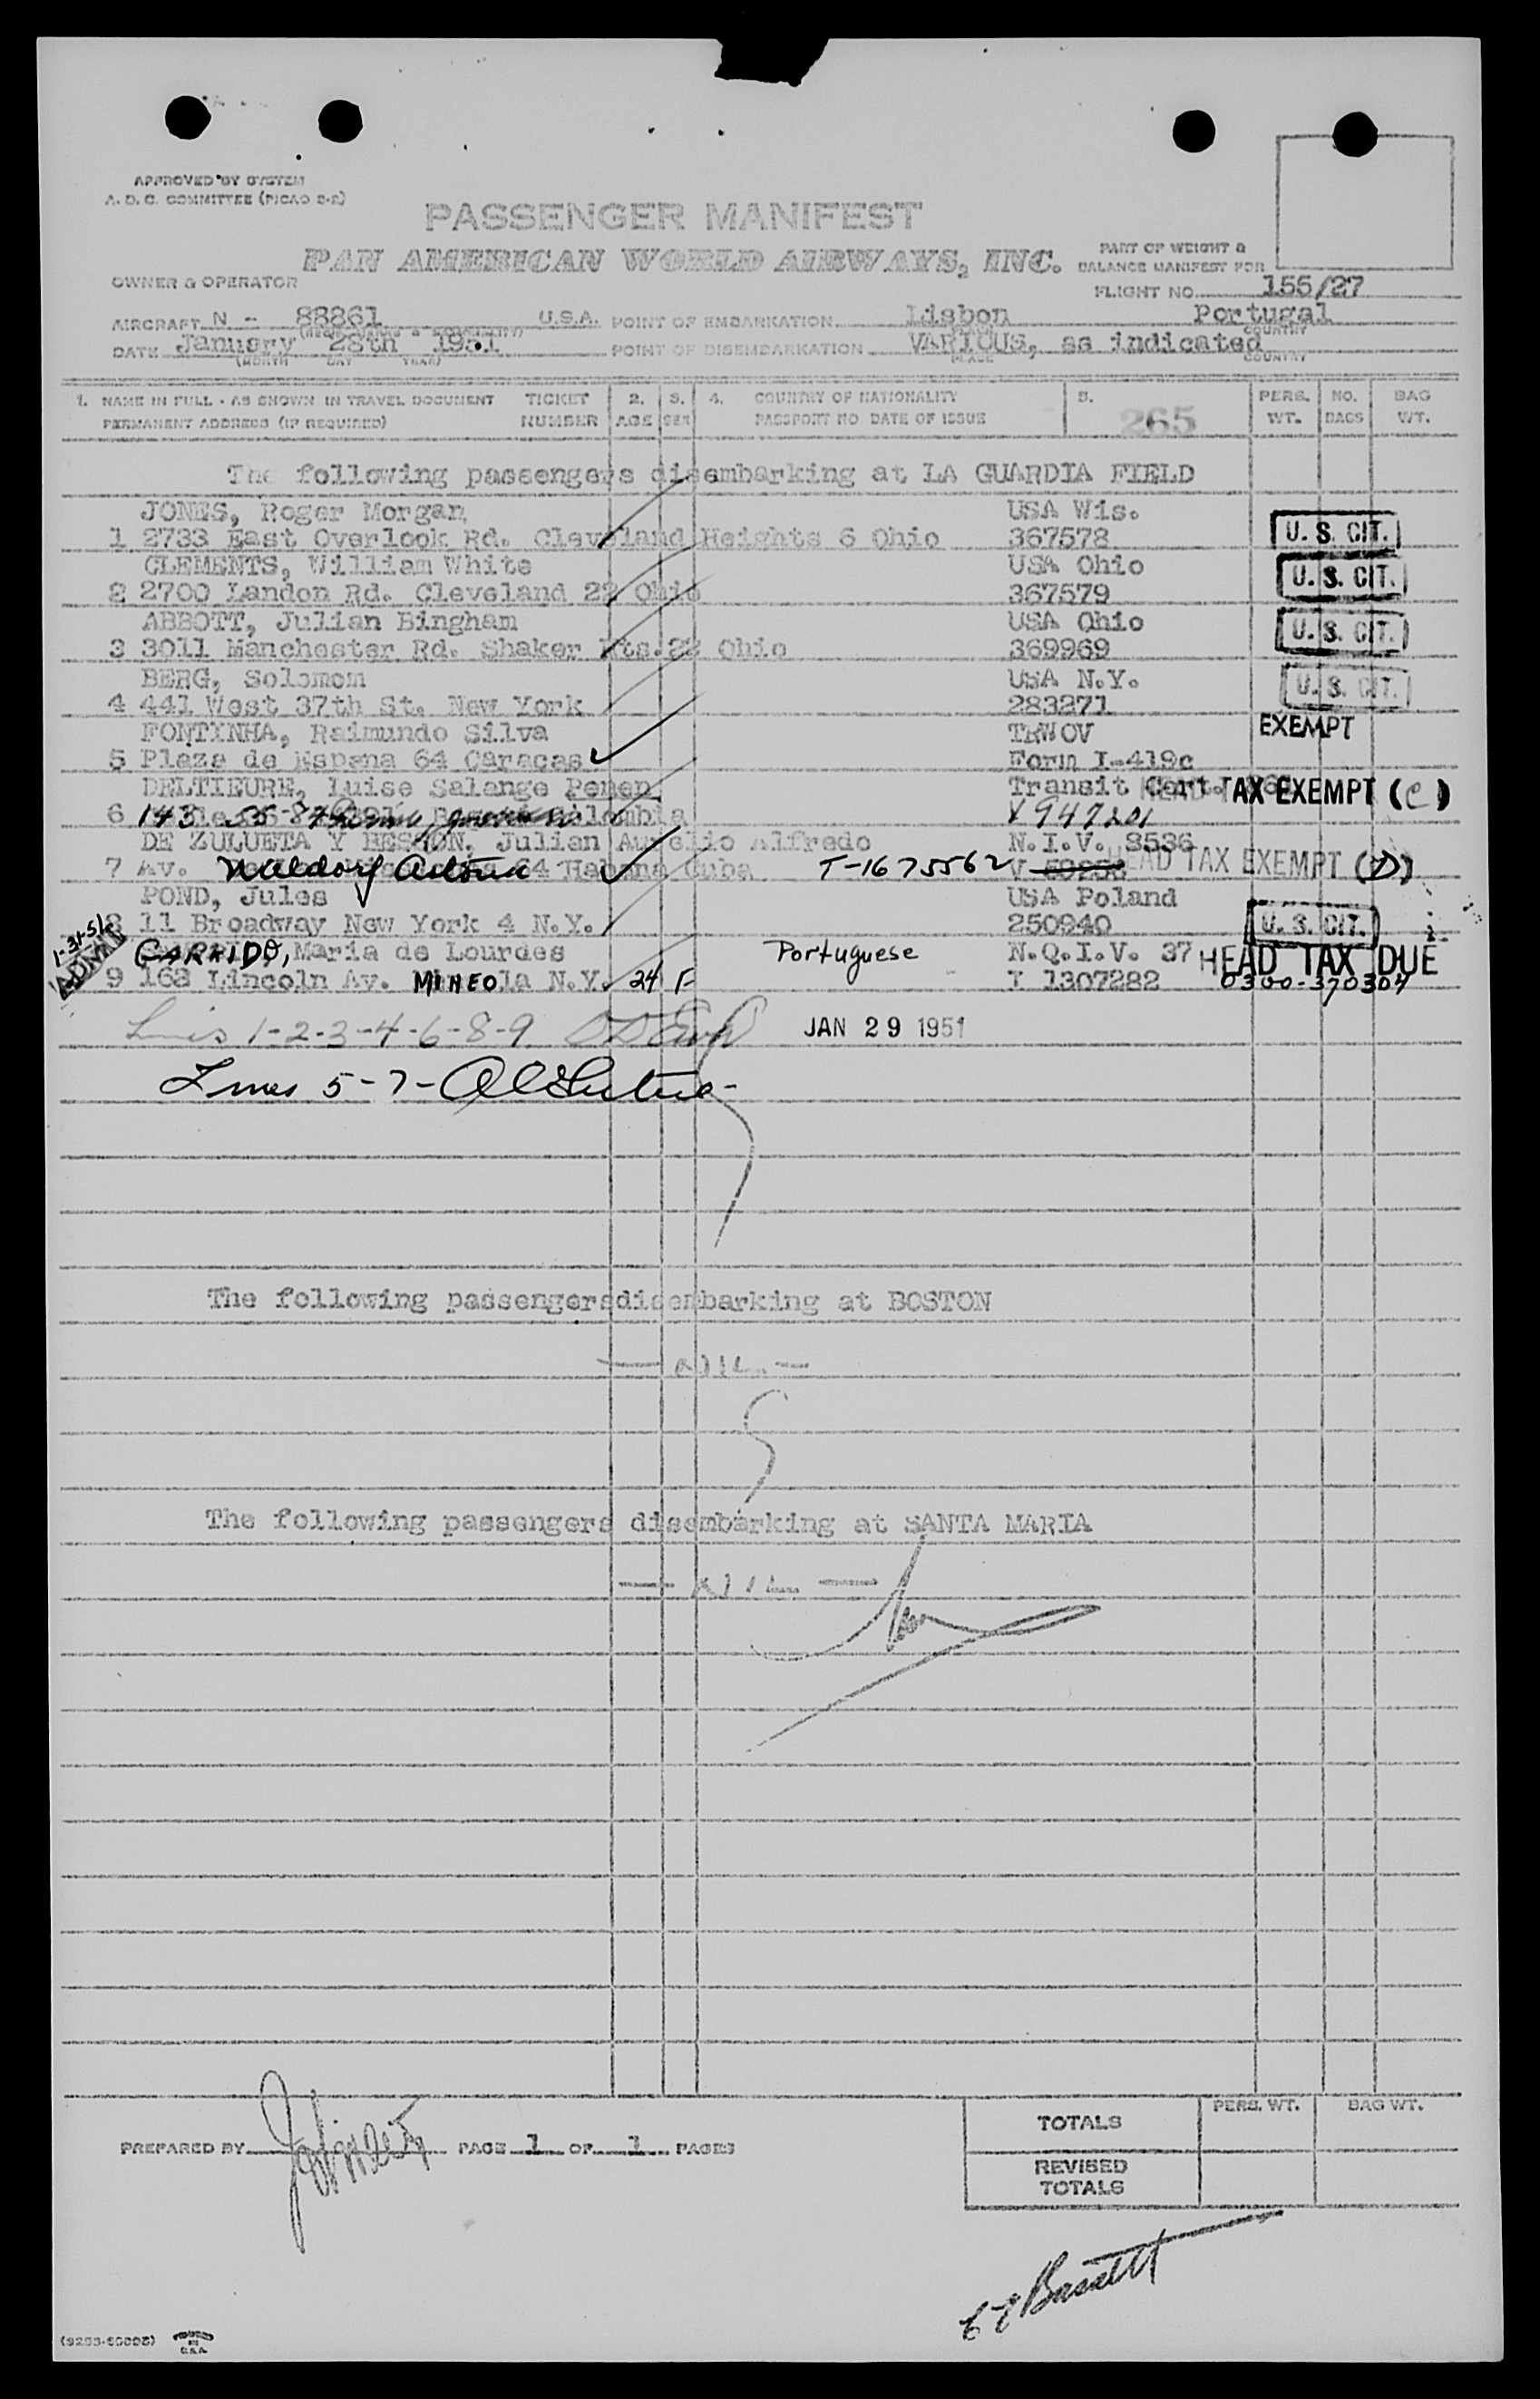 APPROVED BY SYSTEM
A. D. C. COMMITTEE (PICAO S-2)
PASSENGER MANIFEST
PAN AMERICAN WORLD AIRWAYS, INC.
PART OF WEIGHT &
BALANCE MANIFEST FOR
OWNER & OPERATOR
FLIGHT NO. 155/27
AIRCRAFT N - 88861 U.S.A. POINT OF EMBARKATION Lisbon Portugal
DATE January 28th 1951 POINT OF DISEMBARKATION VARIOUS, as indicated
(MONTH DAY YEAR) PLACE COUNTRY
1. NAME IN FULL - AS SHOWN IN TRAVEL DOCUMENT TICKET 2. 3. 4. COUNTRY OF NATIONALITY 5. PERS. NO. BAG
PERMANENT ADDRESS (IF REQUIRED) NUMBER AGE SEX PASSPORT NO DATE OF ISSUE 265 WT. BAGS WT.
The following passengers disembarking at LA GUARDIA FIELD
JONES, Roger Morgan USA Wis.
1 2733 East Overlook Rd. Cleveland Heights 6 Ohio 367578 U. S. CIT.
CLEMENTS, William White USA Ohio
2 2700 Landon Rd. Cleveland 22 Ohio 367579 U. S. CIT.
ABBOTT, Julian Bingham USA Ohio
3 3011 Manchester Rd. Shaker Hts. 22 Ohio 369969 U. S. CIT.
BERG, Solomon USA N.Y.
4 441 West 37th St. New York 283271 U. S. CIT.
FONTINHA, Raimundo Silva TRWOV EXEMPT
5 Plaza de Espana 64 Caracas Form I-419c
DELTIEURE, Luise Salange Pemen Transit Cert. HEAD TAX EXEMPT (C)
6 143 55-87 V 947201
DE ZULUETA Y BESSON, Julian Aurelio Alfredo N.I.V. 3536
7 Av. Waldorf Astoria 64 Habana Cuba T-1675562 V HEAD TAX EXEMPT (D)
POND, Jules USA Poland
8 11 Broadway New York 4 N.Y. 250940 U. S. CIT.
1-31-51 ADMIT
GARRIDO, Maria de Lourdes Portuguese N.Q.I.V. 37 HEAD TAX DUE
9 168 Lincoln Av. MINEOla N.Y. 24 F I 1307282 0300-370307
Lines 1-2-3-4-6-8-9 JAN 29 1951
Lines 5-7-
The following passengers disembarking at BOSTON
- NIL -
The following passengers disembarking at SANTA MARIA
- NIL -
PREPARED BY PAGE 1 OF 1 PAGES
TOTALS PERS. WT. BAG WT.
REVISED
TOTALS
Bassett